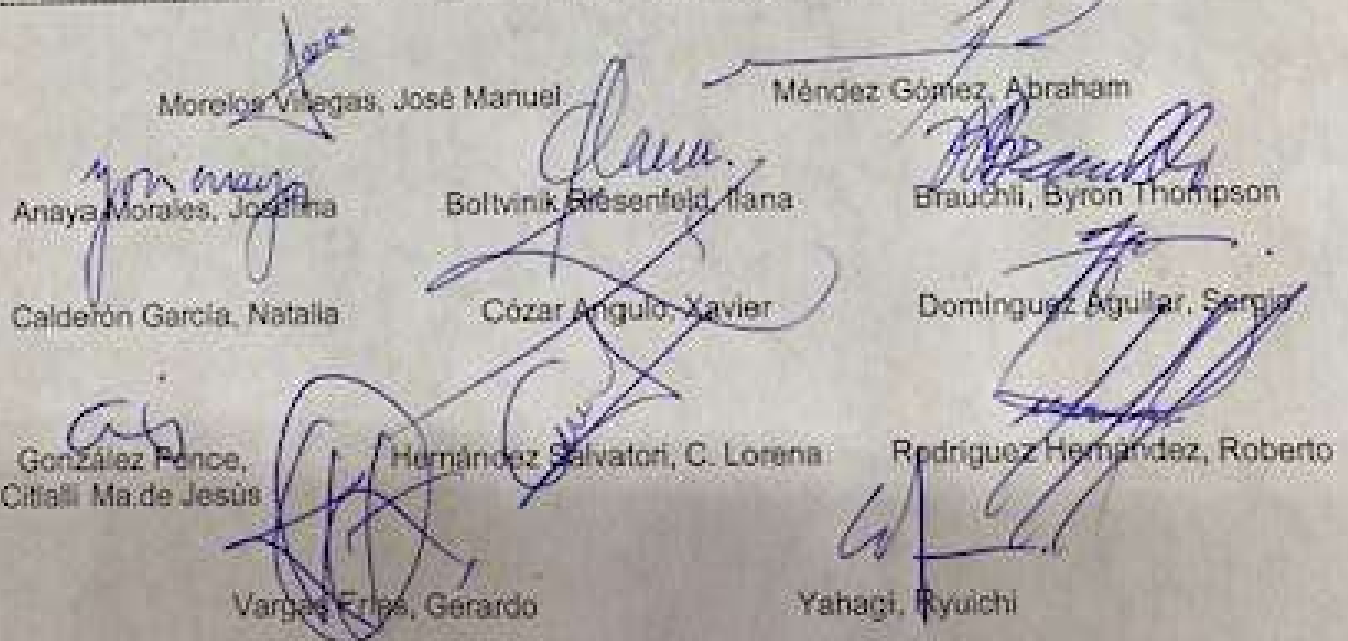 Morelos Villegas, José Manuel
Méndez Gómez, Abraham
Anaya Morales, Josefina
Boltvinik Riesenfeld, Ilana
Brauchli, Byron Thompson
Calderón García, Natalia
Cózar Angulo, Xavier
Domínguez Aguilar, Sergio
González Ponce,
Citlalli Ma.de Jesús
Hernández Salvatori, C. Lorena
Rodríguez Hernández, Roberto
Vargas Frías, Gerardo
Yahagi, Ryuichi